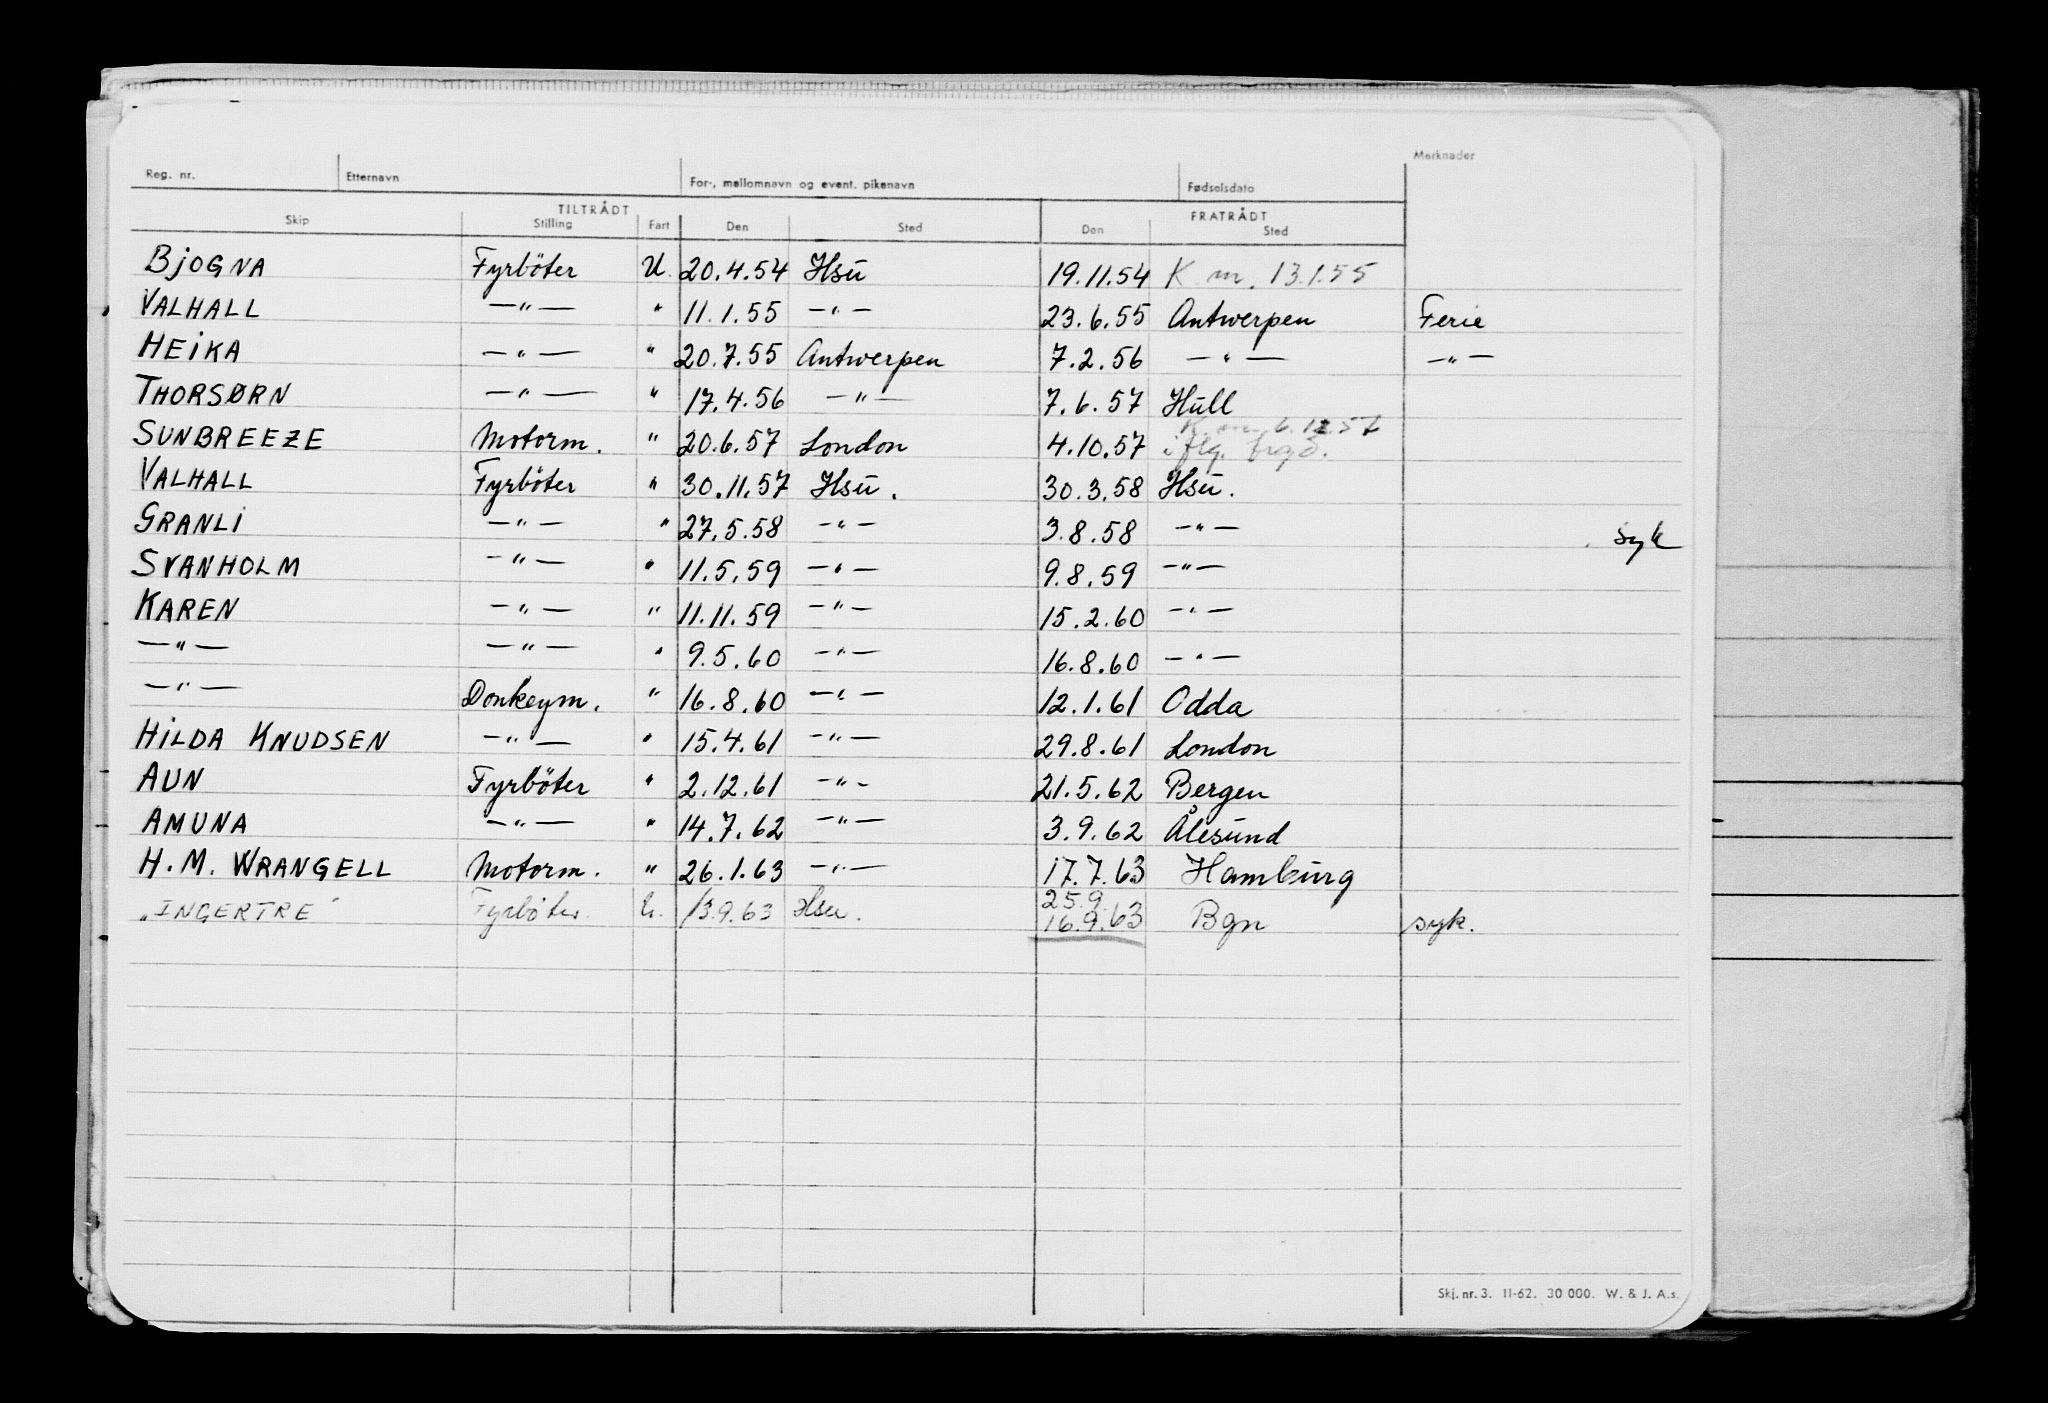 Reg. nr. Etternavn For-, mellomnavn og event. pikenavn Fødselsdato Merknader
TILTRÅDT FRATRÅDT
Skip Stilling Fart Den Sted Den Sted
BJOGNA Fyrböter U. 20.4.54 Hsu 19.11.54 K. m. 13.1.55
VALHALL —"— " 11.1.55 —"— 23.6.55 Antwerpen Ferie
HEIKA —"— " 20.7.55 Antwerpen 7.2.56 —"— —"—
THORSØRN —"— " 17.4.56 —"— 7.6.57 Hull
K. m. 6.12.57
SUNBREEZE Motorm. " 20.6.57 London 4.10.57 iflg.
VALHALL Fyrböter " 30.11.57 Hsu. 30.3.58 Hsu.
GRANLI —"— " 27.5.58 —"— 3.8.58 —"— syk
SVANHOLM —"— " 11.5.59 —"— 9.8.59 —"—
KAREN —"— " 11.11.59 —"— 15.2.60 —"—
—"— —"— " 9.5.60 —"— 16.8.60 —"—
—"— Donkeym. " 16.8.60 —"— 12.1.61 Odda
HILDA KNUDSEN —"— " 15.4.61 —"— 29.8.61 London
AUN Fyrböter " 2.12.61 —"— 21.5.62 Bergen
AMUNA —"— " 14.7.62 —"— 3.9.62 Ålesund
H.M. WRANGELL Motorm. " 26.1.63 —"— 17.7.63 Hamburg
25.9.
"INGERTRE" Fyrböter. U. 13.9.63 Hsu. 16.9.63 Bgn syk.
Skj. nr. 3. 11-62. 30 000. W. & J. A.s.